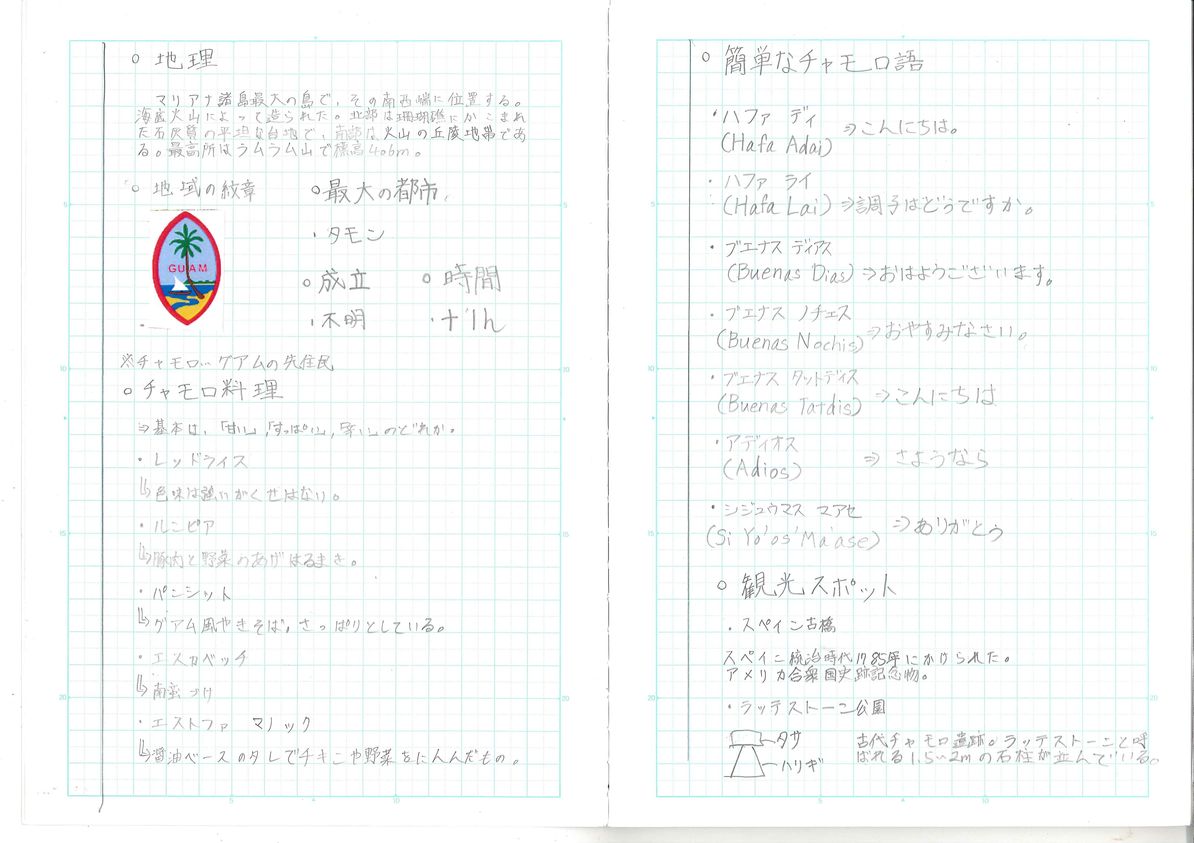 ○ 地理
マリアナ諸島最大の島で、その南西端に位置する。
海底火山によって造られた。北部は珊瑚礁にかこまれ
た石灰質の平坦な台地で、南部は火山の丘陵地帯であ
る。最高所はラムラム山で標高406m。
○ 地域の紋章
GUAM
○最大の都市
・タモン
○成立
・不明
○時間
※チャモロ…グアムの先住民
○チャモロ料理
⇒基本は、「甘い」,「すっぱい」,「辛い」のどれか。
・レッドライス
色味は強いがくせはない。
・ルンピア
豚肉と野菜のあげはるまき。
・パンシット
グアム風やきそば。さっぱりとしている。
・エスカベッチ
南蛮づけ
・エストファ マノック
醤油ベースのタレでチキンや野菜をにんんだもの。
○ 簡単なチャモロ語
・ハファ ディ
(Hafa Adai) ⇒こんにちは。
・ハファ ライ
(Hafa Lai) ⇒調子はどうですか。
・ブエナス ディアス
(Buenas Dias) ⇒おはようございます。
・ブエナス ノチェス
(Buenas Nochis) ⇒おやすみなさい。
・ブエナス タットディス
(Buenas Tatdis) ⇒こんにちは
・アディオス
(Adios) ⇒ さようなら
・シジュウマス マアセ
(Si Yo'os 'Ma'ase) ⇒ありがとう
○ 観光スポット
・スペイン古橋
スペイン統治時代1785年にかけられた。
アメリカ合衆国史跡記念物。
・ラッテストーン公園
タサ
ハリギ
古代チャモロ遺跡。ラッテストーンと呼
ばれる1.5~2mの石柱が並んでいる。